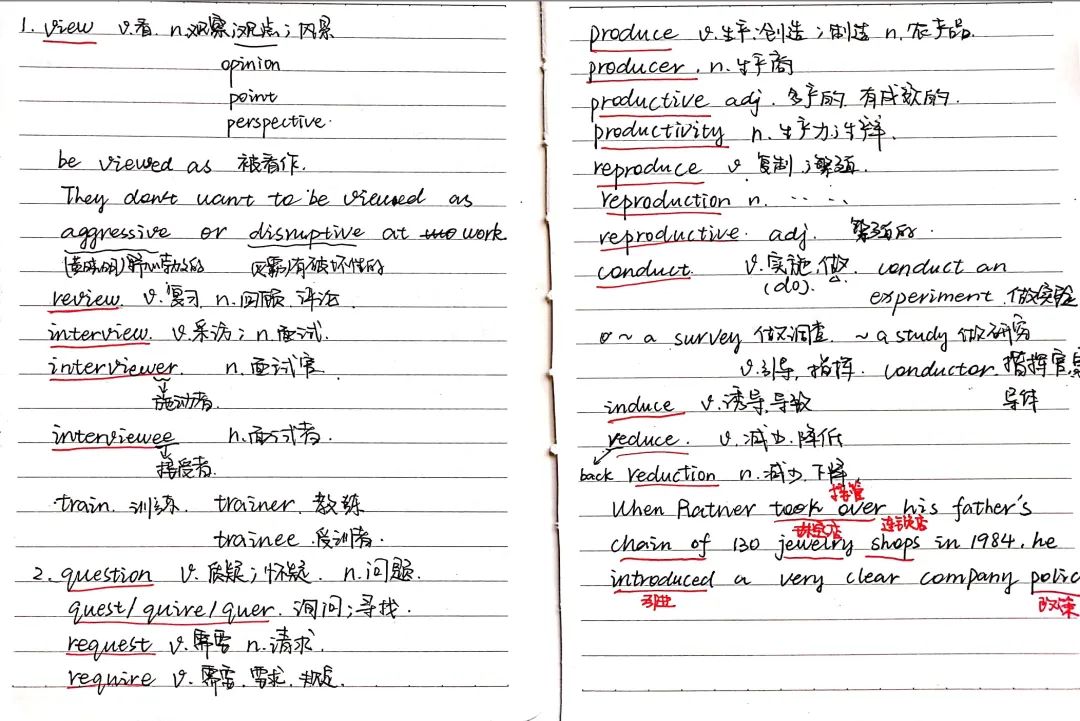 1. view v.看 n.观察;观点;风景
opinion
point
perspective.
be viewed as 被看作.
They don't want to be viewed as
aggressive or disruptive at work
有破坏性的
review v.复习 n.回顾.评论
interview. v.采访; n.面试.
interviewer. n.面试官
施动者.
interviewee n.面试者.
接受者.
train. 训练. trainer. 教练
trainee.受训者.
2. question v.质疑;怀疑. n.问题.
quest/quire/quer. 询问;寻找.
request v.需要 n.请求.
require v.需要.需求.规定.
produce v.生产;创造;制造 n.农产品.
producer. n.生产商
productive adj. 多产的.有成效的.
productivity n.生产力;生产率.
reproduce v.复制;繁殖.
reproduction n.
reproductive. adj. 繁殖的.
conduct. v.实施.做. conduct an
(do).
experiment.做实验
~ a survey 做调查. ~ a study 做研究
v.引导,指挥. conductor.指挥官
induce v.诱导.导致 导体
reduce. v.减少.降低
back reduction n.减少.下降
接管
When Ratner took over his father's
珠宝店 连锁店
chain of 130 jewelry shops in 1984, he
introduced a very clear company polic
引进 政策